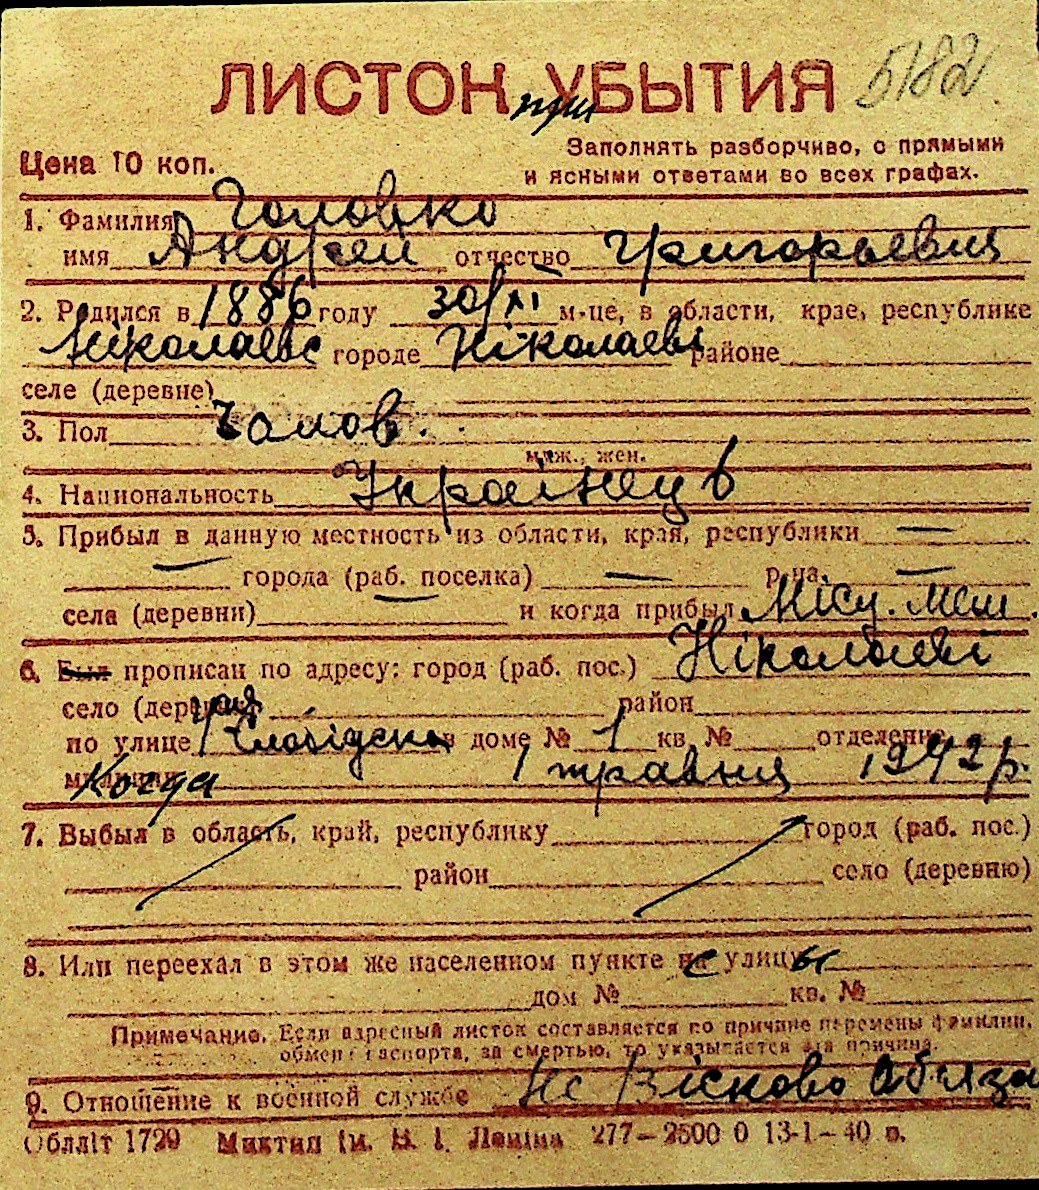 ЛИСТОК при УБЫТИЯ 5182
Цена 10 коп.
Заполнять разборчиво, с прямыми
и ясными ответами во всех графах.
1. Фамилия Головко
имя Андрей отчество Григорьевич
2. Родился в 1886 году 30/XI м-це, в области, крае, республике
Ніколаевс городе Ніколаеві районе
селе (деревне)
3. Пол чолов.
муж., жен.
4. Национальность Українець
5. Прибыл в данную местность из области, края, республики —
— города (раб. поселка) — р-на —
села (деревни) — и когда прибыл Місц. меш.
6. Был прописан по адресу: город (раб. пос.) Ніколаеві
село (деревня) район
по улице 1 Слобідска в доме № 1 кв. № отделение
милиции Когда 1 травня 1942 р.
7. Выбыл в область, край, республику город (раб. пос.)
район село (деревню)
8. Или переехал в этом же населенном пункте с улицы
дом № кв. №
Примечание. Если адресный листок составляется по причине перемены фамилии,
обмена паспорта, за смертью, то указывается эта причина.
9. Отношение к военной службе Не Вісково Обяза
Облліт 1729 Миктип ім. В. І. Леніна 277—2500 0 13-1—40 п.